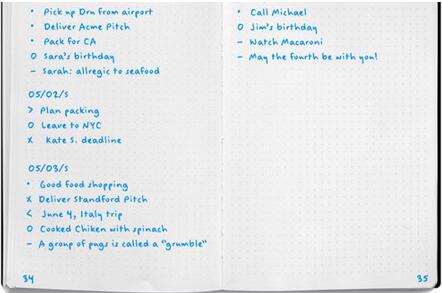 • Pick up Dru from airport
• Deliver Acme Pitch
• Pack for CA
O Sara's birthday
– Sarah: allregic to seafood
05/02/S
> Plan packing
O Leave to NYC
X Kate S. deadline
05/03/S
• Good food shopping
X Deliver Standford Pitch
< June 4, Italy trip
O Cooked Chiken with spinach
– A group of pugs is called a "grumble"
34
• Call Michael
O Jim's birthday
– Watch Macaroni
– May the fourth be with you!
35